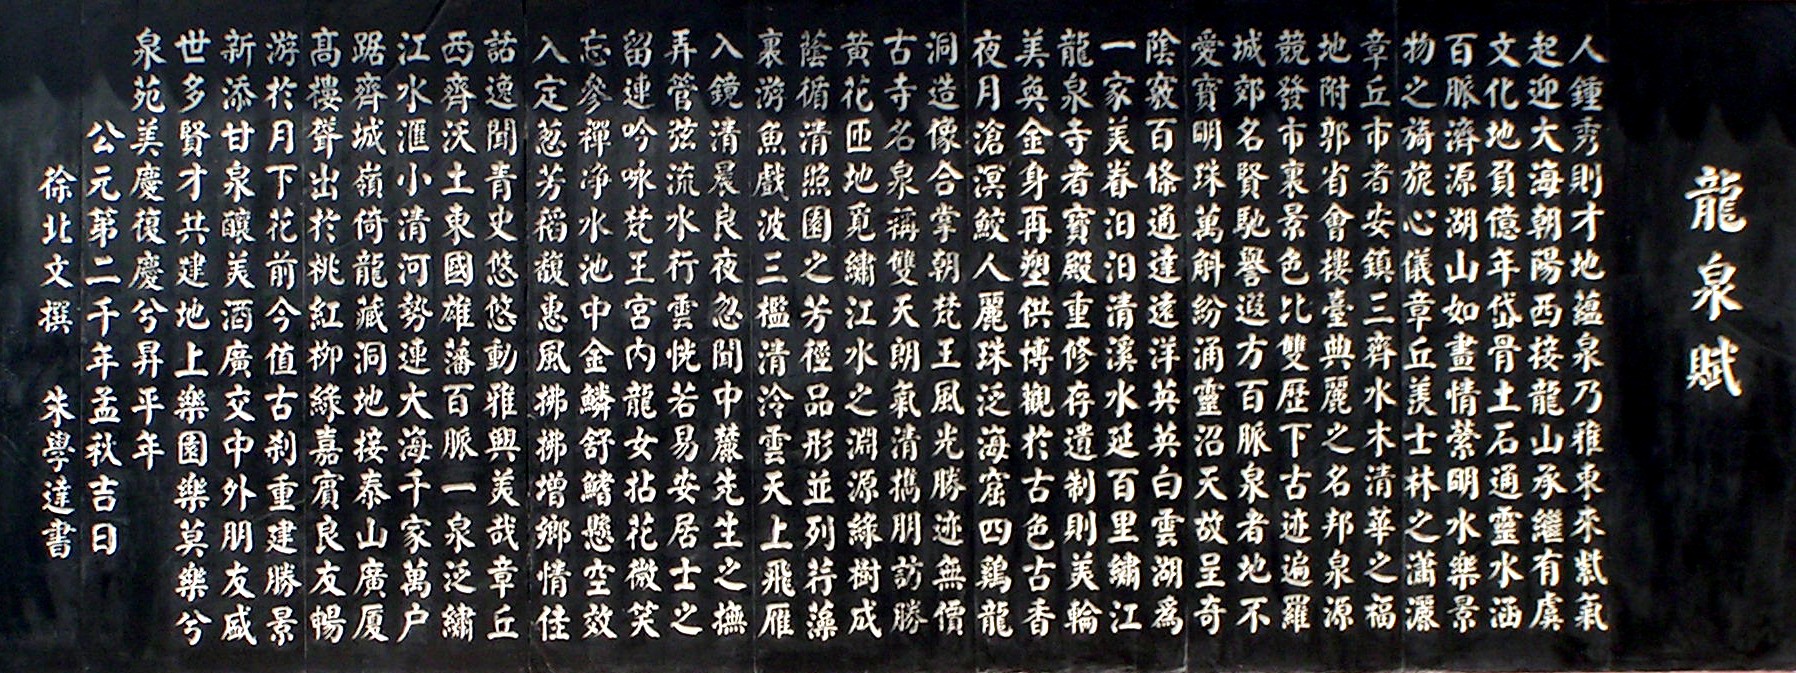 龍泉賦
人鍾秀則才地蘊泉乃雅東來紫氣
起迎大海朝陽西接龍山承繼有虞
文化地負億年岱骨土石通靈水涵
百脈濟源湖山如畫情縈明水樂景
物之旖旎心儀章丘羨士林之瀟灑
章丘市者安鎮三齊水木清華之福
地附郭省會樓臺典麗之名邦泉源
競發市裏景色比雙歷下古迹遍羅
城郊名賢馳譽遐方百脈泉者地不
愛寶明珠萬斛紛涌靈沼天故呈奇
陰竅百條通達遠洋英英白雲湖爲
一家美眷汩汩清溪水延百里繡江
龍泉寺者寶殿重修存遺制則美輪
美奐金身再塑供博觀於古色古香
夜月滄溟鮫人麗珠泛海窟四鷄龍
洞造像合掌朝梵王風光勝迹無價
古寺名泉稱雙天朗氣清攜朋訪勝
黃花匝地覓繡江水之淵源綠樹成
蔭循清照園之芳徑品形並列荇藻
裏游魚戲波三檻清泠雲天上飛雁
入鏡清晨良夜忽聞中麓先生之撫
弄管弦流水行雲恍若易安居士之
留連吟咏梵王宮內龍女拈花微笑
忘參禪净水池中金鱗舒鰭懸空效
入定葱芳稻馥惠風拂拂增鄉情佳
話逸聞青史悠悠動雅興美哉章丘
西齊沃土東國雄藩百脈一泉泛繡
江水滙小清河勢連大海千家萬户
踞齊城嶺倚龍藏洞地接泰山廣厦
高樓聳出於桃紅柳綠嘉賓良友暢
游於月下花前今值古刹重建勝景
新添甘泉釀美酒廣交中外朋友盛
世多賢才共建地上樂園樂莫樂兮
泉苑美慶復慶兮昇平年
公元第二千年孟秋吉日
徐北文撰 朱學達書